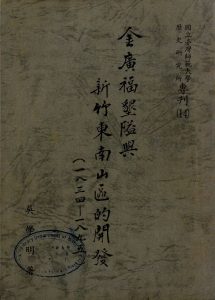 國立台灣師範大學
歷史研究所
專刊(14)
金廣福墾隘與
新竹東南山區的開發
(一八三四─一八九五)
吳學明 著